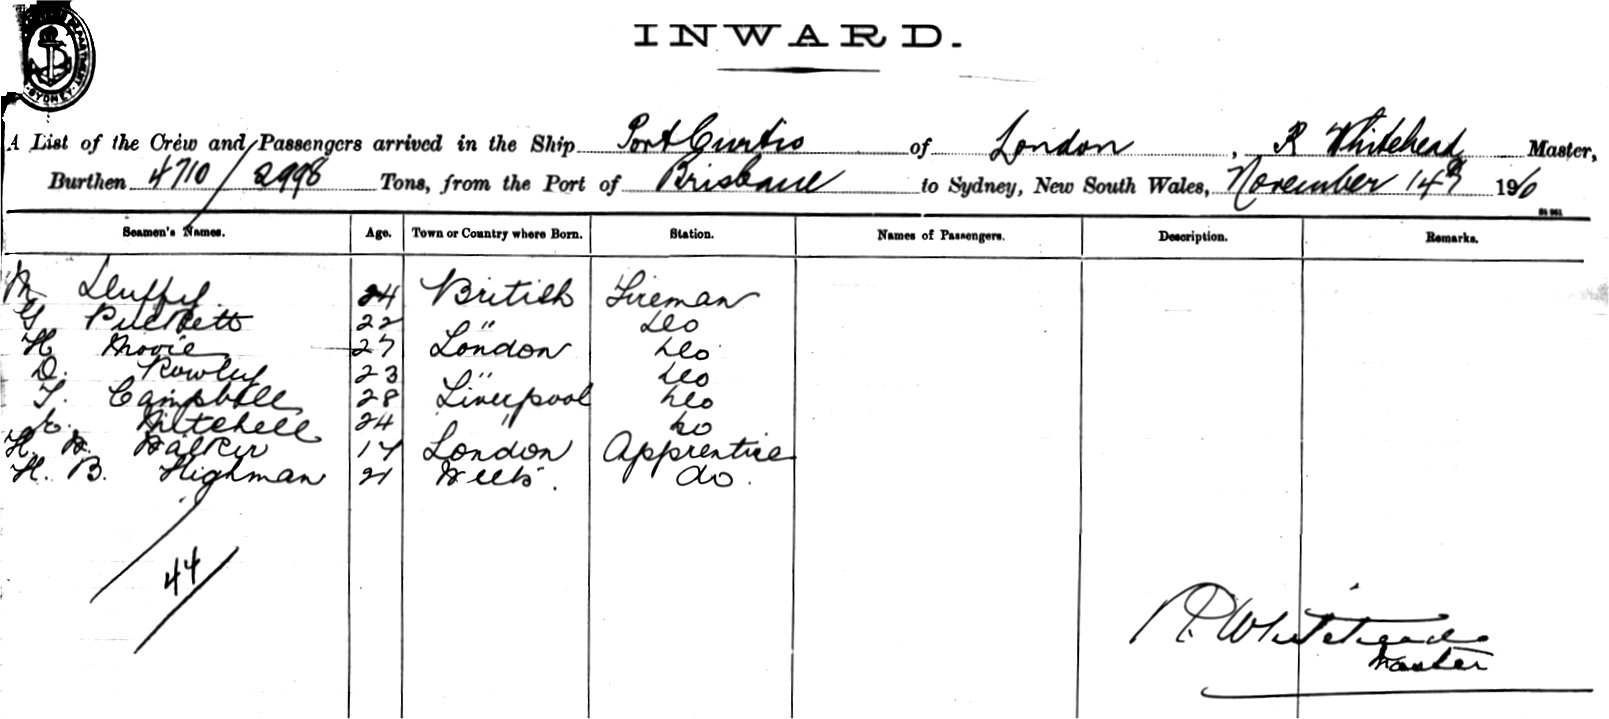 SYDNEY
INWARD.
A List of the Crew and Passengers arrived in the Ship Port Curtis of London, R Whitehead Master,
Burthen 4710/2998 Tons, from the Port of Brisbane to Sydney, New South Wales, November 14th 1910
Seamen's Names. Age. Town or Country where Born. Station. Names of Passengers. Description. Remarks.
M Duffy 24 British Fireman
G Puckett 22 " do
H 27 London do
D. Rowley 23 " do
T. Campbell 28 Liverpool do
Mitchell 24 " do
H. W. Walker 17 London Apprentice
H. B. Highman 21 Wilts. do.
44
R. Whitehead
Master